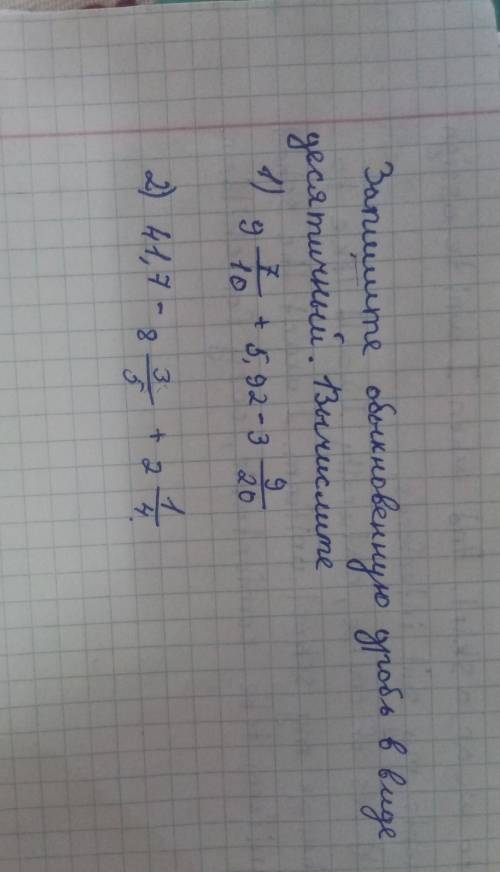 Запишите обыкновенную дробь в виде
десятичный. Вычислите
1) 9 7/10 + 5,92 - 3 9/20
2) 41,7 - 8 3/5 + 2 1/4